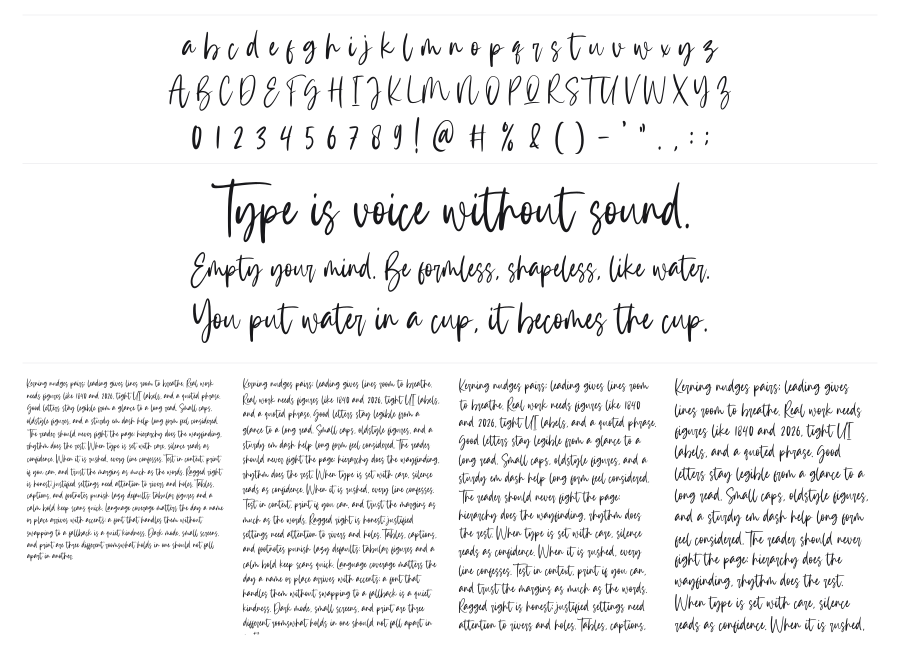 a b c d e f g h i j k l m n o p q r s t u v w x y z
A B C D E F G H I J K L M N O P Q R S T U V W X Y Z
0 1 2 3 4 5 6 7 8 9 ! @ # % & ( ) - ' " . , : ;
Type is voice without sound.
Empty your mind. Be formless, shapeless, like water.
You put water in a cup, it becomes the cup.
Kerning nudges pairs; leading gives lines room to breathe. Real work
needs figures like 1840 and 2026, tight UI labels, and a quoted phrase.
Good letters stay legible from a glance to a long read. Small caps,
oldstyle figures, and a sturdy em dash help long form feel considered.
The reader should never fight the page: hierarchy does the wayfinding,
rhythm does the rest. When type is set with care, silence reads as
confidence. When it is rushed, every line confesses. Test in context, print
if you can, and trust the margins as much as the words. Ragged right
is honest; justified settings need attention to rivers and holes. Tables,
captions, and footnotes punish lazy defaults: tabular figures and a
calm bold keep scans quick. Language coverage matters the day a name
or place arrives with accents: a font that handles them without
swapping to a fallback is a quiet kindness. Dark mode, small screens,
and print are three different rooms; what holds in one should not fall
apart in another.
Kerning nudges pairs; leading gives lines room to breathe.
Real work needs figures like 1840 and 2026, tight UI labels,
and a quoted phrase. Good letters stay legible from a
glance to a long read. Small caps, oldstyle figures, and a
sturdy em dash help long form feel considered. The reader
should never fight the page: hierarchy does the wayfinding,
rhythm does the rest. When type is set with care, silence
reads as confidence. When it is rushed, every line confesses.
Test in context, print if you can, and trust the margins as
much as the words. Ragged right is honest; justified
settings need attention to rivers and holes. Tables, captions,
and footnotes punish lazy defaults: tabular figures and a
calm bold keep scans quick. Language coverage matters the
day a name or place arrives with accents: a font that
handles them without swapping to a fallback is a quiet
kindness. Dark mode, small screens, and print are three
different rooms; what holds in one should not fall apart in
Kerning nudges pairs; leading gives lines room
to breathe. Real work needs figures like 1840
and 2026, tight UI labels, and a quoted phrase.
Good letters stay legible from a glance to a
long read. Small caps, oldstyle figures, and a
sturdy em dash help long form feel considered.
The reader should never fight the page:
hierarchy does the wayfinding, rhythm does
the rest. When type is set with care, silence
reads as confidence. When it is rushed, every
line confesses. Test in context, print if you can,
and trust the margins as much as the words.
Ragged right is honest; justified settings need
attention to rivers and holes. Tables, captions,
Kerning nudges pairs; leading gives
lines room to breathe. Real work needs
figures like 1840 and 2026, tight UI
labels, and a quoted phrase. Good
letters stay legible from a glance to a
long read. Small caps, oldstyle figures,
and a sturdy em dash help long form
feel considered. The reader should never
fight the page: hierarchy does the
wayfinding, rhythm does the rest.
When type is set with care, silence
reads as confidence. When it is rushed,